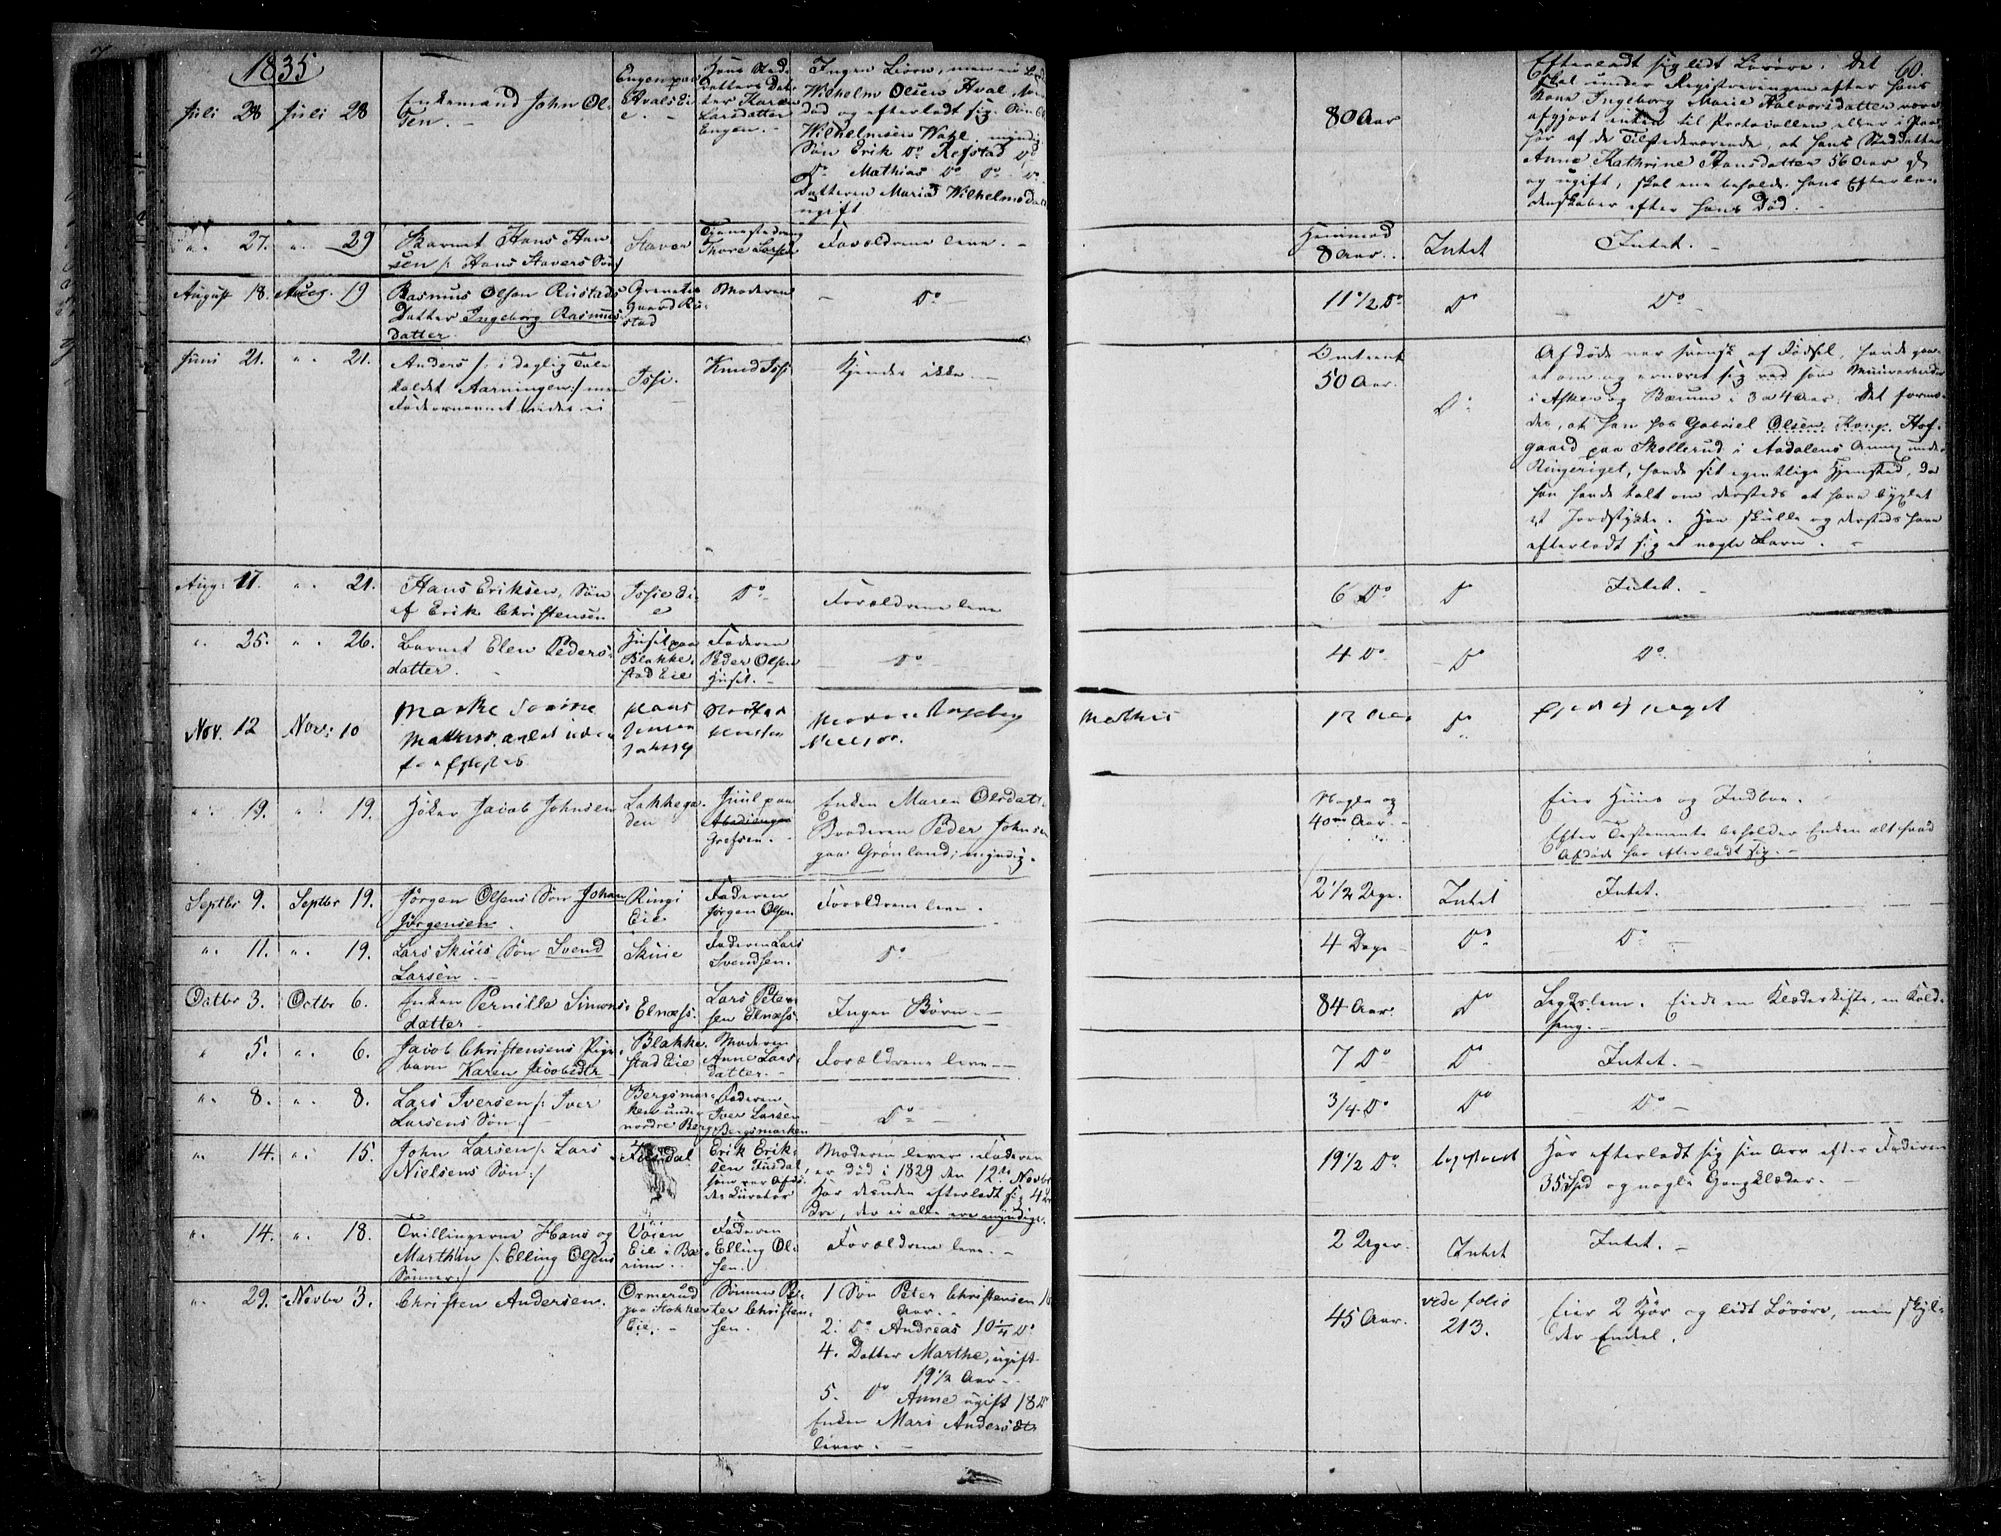 1835
60.
Juli 28 Juli 28
Enkemand John Ol-
sen.
Engen paa
Hvals Ei-
e.
Hans Sted-
datters Dat-
ter Karen
Larsdatter
Engen.
Ingen Livsa, men en
Wilhelm Olsen Hval,
død og efterladt sig.
Wilhelmsen myndig
Søn Erik Do Refstad Do
Do Mathias Do Do Do
Datteren Maria Wilhelmsdatt
ugift
80 Aar
Efterladt sig lidt Løsøre. Det
skal under Registreringen efter hans
Kone Ingeborg Marie Halvorsdatter være
afgjort enten til Protocollen eller i Paa-
hør af de Tilstedeværende, at hans Steddatter
Anne Kathrine Hansdatter 56 Aar gl
og ugift, skal ene beholde hans Efterla-
denskaber efter hans Død.
" 27. " 29
Barnet Hans Han
sen /: Hans Stavers Søn :/
Staver
Thore Larsen
Forældrene leve.
8 Aar.
Intet
Intet.
August 18. Aug. 19
Rasmus Olsen Rustads
Datter Ingeborg Rasmus-
datter
Grevsta
Gaard Ru-
stad
Moderen
Do
11 1/2 Do
Do
Do
Juni 21. " 21.
Anders /: i daglig Tale
kaldet Aarningen :/ men
Fadernavnet vides ei
Issi.
Knud Issi
Kjendes ikke.
Omtrent
50 Aar.
Do
Afdøde var svensk af Fødsel, havde gaa-
et om og ernæret sig ved som Muurarbeider
i Asker og Bærum i 3 a 4 Aar. Det formo-
des, at han hos Gabriel Olsen Hof-
gaard paa Skollerud i Aadalens Annex under
Ringeriget, havde sit egentlige Hjemsted, da
han havde talt om dersteds at have byxlet
et Jordstykke. Han skulle og dersteds have
efterladt sig et nogle Børn.
Aug. 17. " 21.
Hans Eriksen, Søn
af Erik Christensen
Issie Ei-
e
Do
Forældrene leve
6 Do
Do
Intet.
" 25. " 26.
Barnet Elen Peders-
datter.
Huset paa
Blakke-
stad Eie
Faderen
Peder Olsen
Huset.
Do
4 Do
Do
Do.
Nov. 12 Nov: 10
Mathis
Hans
Jensen
Moderen Ingeborg
Mathis
12 Aar
Do
" 19. " 19.
Høker Jacob Johnsen
Lakkega-
den
Juul paa
Grefsen.
Enken Maren Olsdatt.
Broderen Peder Johns
paa Grønland, myndig.
Nogle og
40 Aar.
Eier Huus og Indboe.
Efter Testamente beholder Enken alt hvad
Afdøde har efterladt sig.
Septbr 9. Septbr 19.
Jørgen Olsens Søn Johan
Jørgensen.
Ringi
Eie
Faderen
Jørgen Olsen
Forældrene leve.
2 1/2 Uge.
Intet
Intet.
" 11. " 19.
Lars Skuis Søn Svend
Larsen.
Skuie
Faderen Lars
Svendsen.
Do
4 Dage
Do
Do
Octbr 3. Octbr 6.
Enken Pernille Simons-
datter
Elnæss.
Lars Peter-
sen Elnæss.
Ingen Børn.
84 Aar.
Do
Lægdslem. Eiede en Klædekiste, en Fold-
seng.
" 5. " 6.
Jacob Christensens Pige-
barn Karen Jacobsdtr.
Blakke-
stad Eie
Moderen
Anne Lars-
datter.
Forældrene leve
7 Do
Do
Intet.
" 8. " 8.
Lars Iversen /: Iver
Larsens Søn :/
Bergsmar-
ken under
nordre Berg
Faderen
Iver Larsen
Bergsmarken
Do
3/4 Do
Do
Do
" 14. " 15.
John Larsen /: Lars
Nielsens Søn :/
Tusdal
Erik Erik-
sen Tusdal
som var Afdø-
des Curator
Moderen lever. Faderen
er død i 1829 den 12te Novbr
Har desuden efterladt sig 4
dre, der ei alle ere myndige.
19 1/2 Do
Har efterladt sig sin Arv efter Faderen
35 Spd og nogle Gangklæder.
" 14. " 18.
Tvillingerne Hans og
Marthin /: Elling Olsens
Sønner :/
Vøien
Eie i Bæ-
rum.
Faderen
Elling Ol-
sen.
Forældrene leve.
2 Uger.
Intet
Intet.
" 29. Novbr 3.
Christen Andersen.
Ormerud
paa Stokker
Eie.
Sønnen Pe-
ter Christen-
sen.
1 Søn Peter Christensen
Aar.
2. Do Andreas 10 1/4 Do
4. Datter Marthe, ugift
19 1/2 Aar.
5. Do Anne ugift 18 Do
Enken Mari Andersdtr
lever.
45 Aar.
vide folio
213.
Eier 2 Kjør og lidt Løsøre, men skyl-
der Endel.